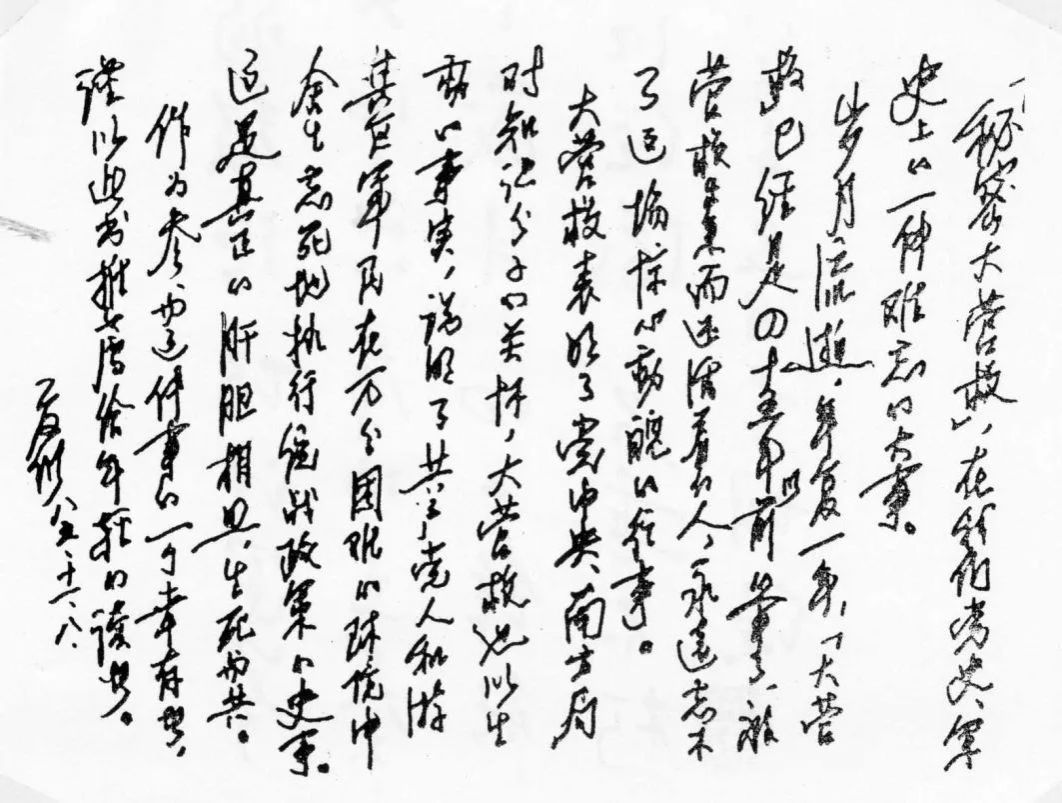 「秘密大营救」,在我们党史、军
史上的一件难忘的大事。
岁月流逝,年复一年,「大营
救已经是四十 年以前 事了,被
营救 而还活着的人,永远忘不
了这场惊心动魄的往事。
大营救表明了党中央、南方局
对知识分子的关怀,大营救也以生
动的事实,说明了共产党人和游
击区军民在万分困难的环境中
舍生忘死地执行统战政策的史事。
这是真正的肝胆相照,生死与共。
作为参与这件事的一个幸存者,
谨以此书推荐给年轻的读者。
夏衍 八五、十一、八、